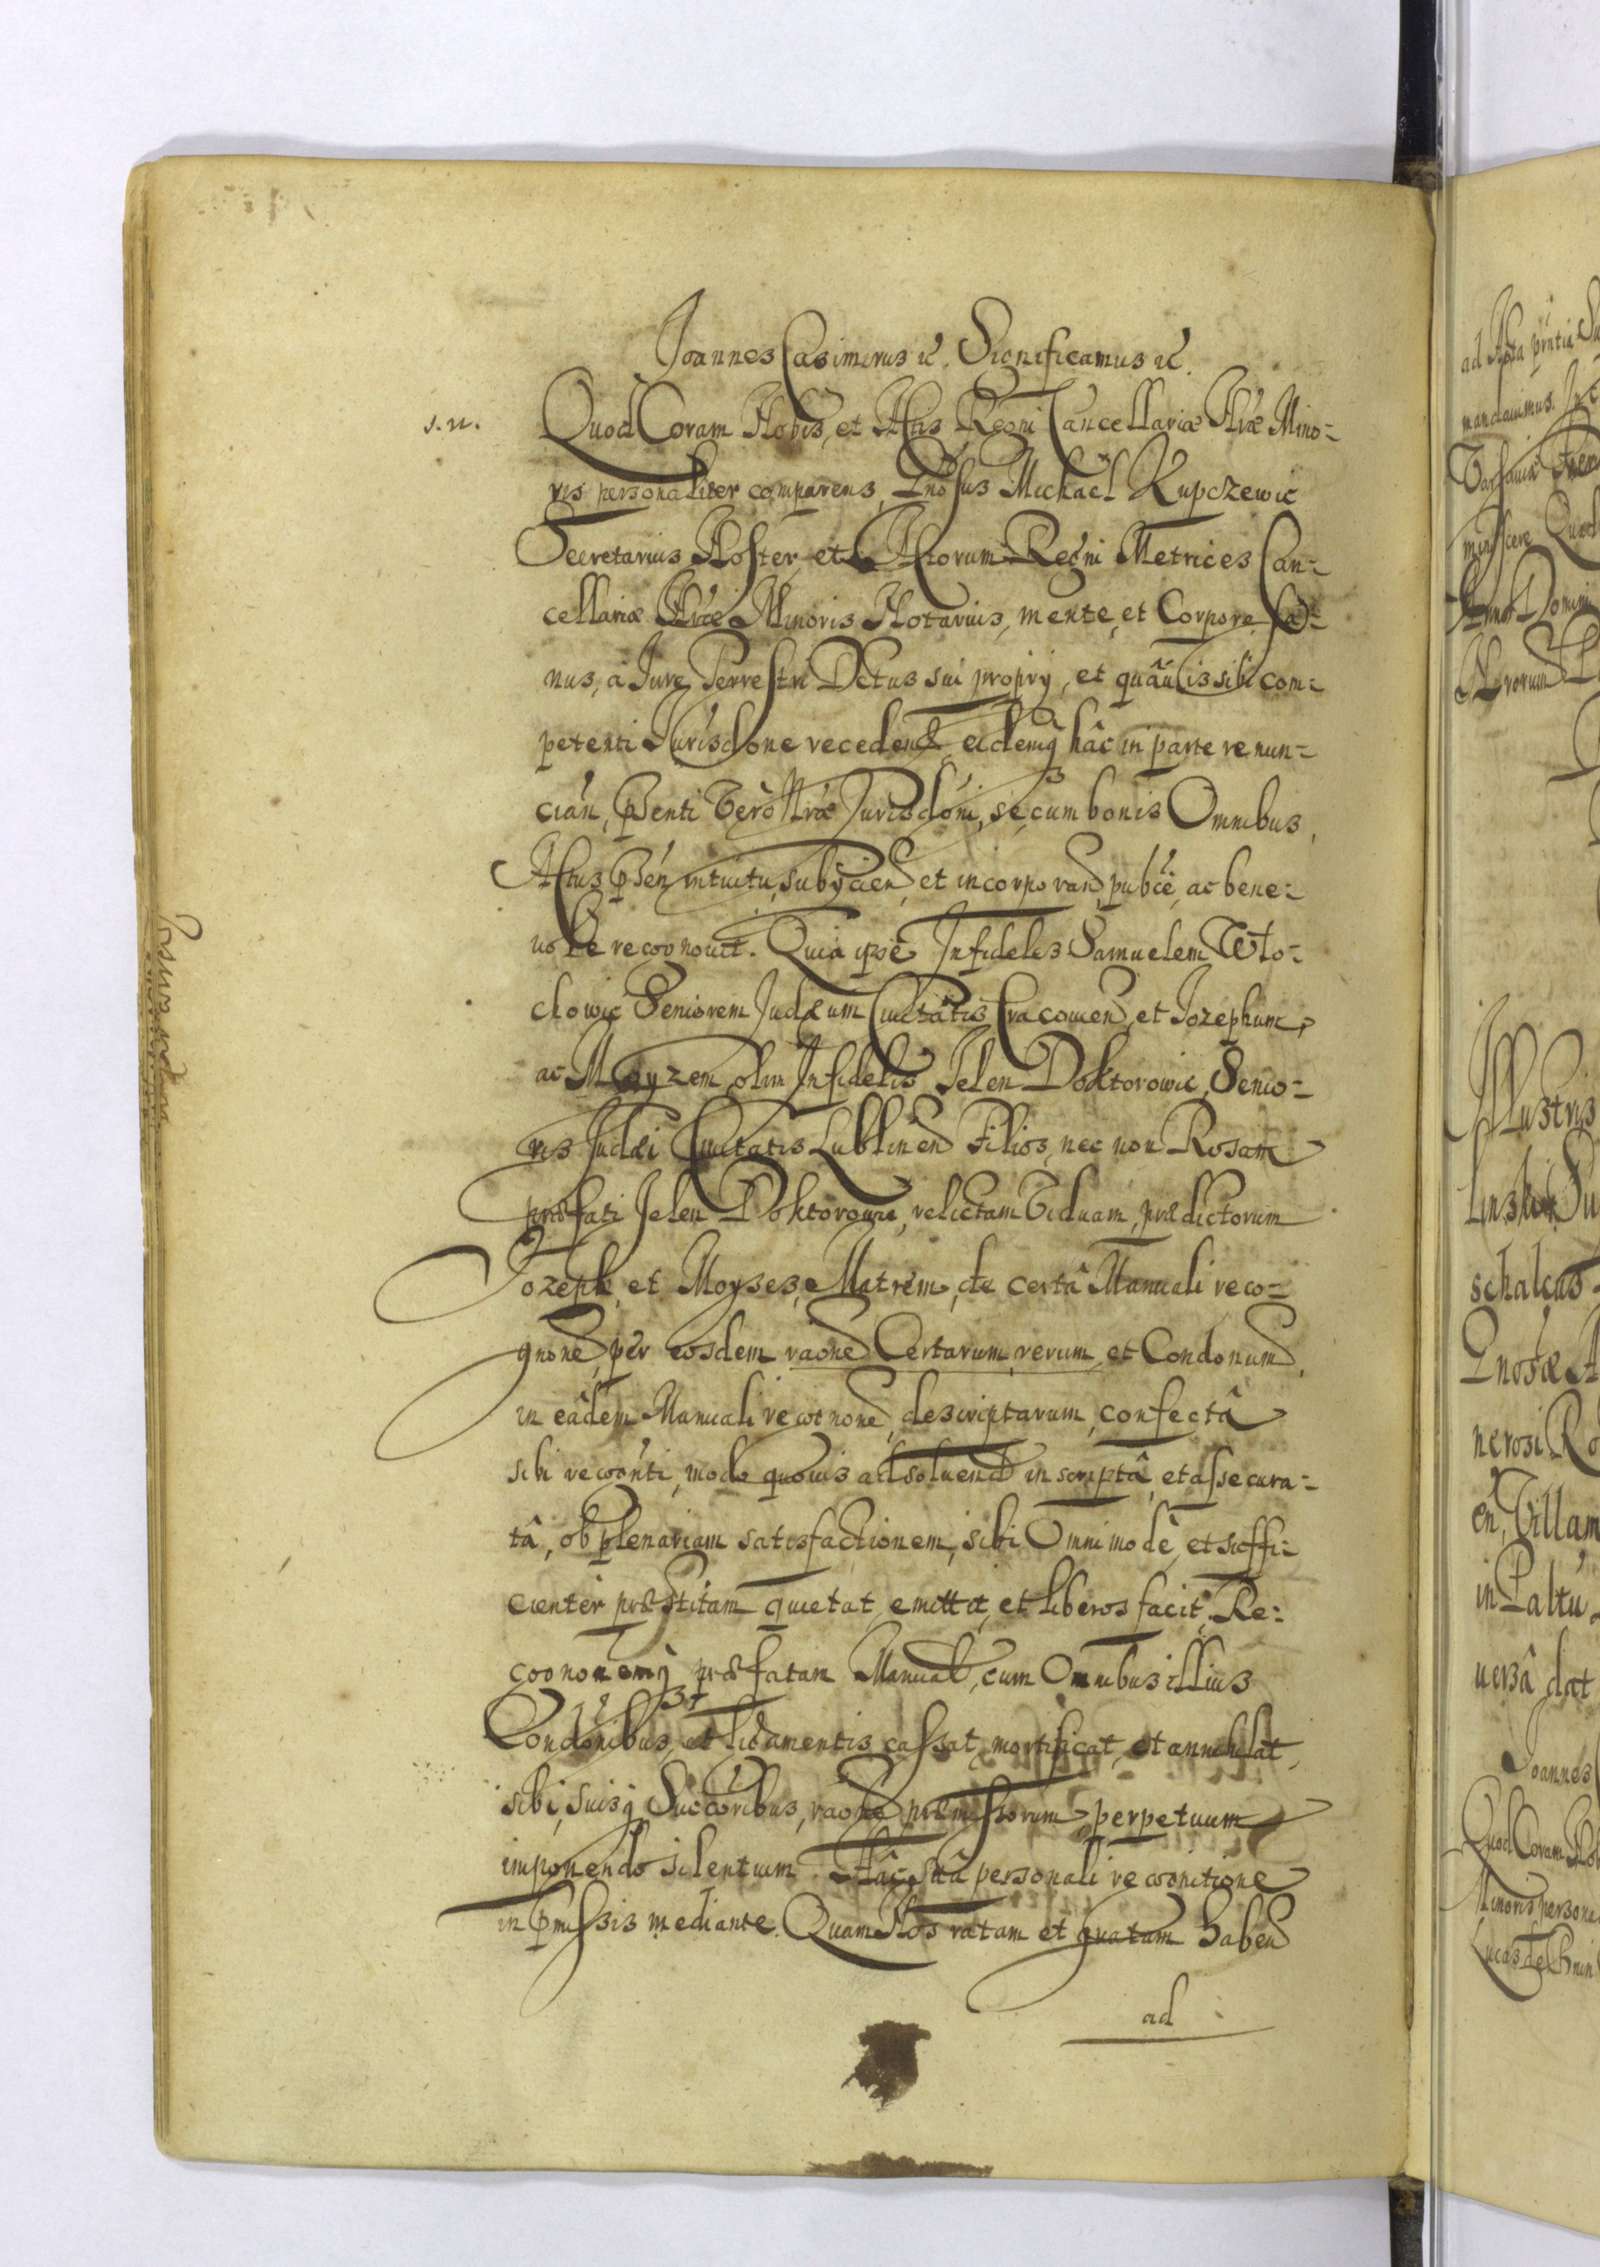 Joannes Casimirus etc. Significamus etc.
s.n.
Quod Coram Nobis, et Actis Regni Cancellariæ Nræ Mino=
ris personaliter comparens, Gnosus Michael Kupczewic
Secretarius Noster, et Actorum Regni Metrices Can=
cellariæ Nræ Minoris Notarius, mente, et Corpore sa=
nus, à Jure Terrestri Dctus sui proprij, et quâvis sibi com=
petenti Jurisdone recedend, eidemq hâc in parte renun=
cian, pnsenti verò Nræ Jurisdoni, se cum bonis Omnibus,
Actus pnsen intuitu, subijciend et incorporand, publcè, ac bene=
uole recognouit. Quia ipse Infideles Samuelem Wlo=
clowic Seniorem Judæum Ciuitatis Cracouien, et Jozephum,
ac Moyzem, olim Infidelis Jelen Doktorowic, Senio=
ris Judæi Ciuitatis Lublinen Filios, nec non Rosam
præfati Jelen Doktorowic, relictam Viduam, prædictorum
Jozeph, et Moyses, Matrem, de certâ Manuali reco=
gnone, per eosdem raone Certarum, rerum, et Condonum,
in eâdem Manuali recognone, descriptarum, confectâ
sibi recognti, modo quouis adsoluend inscriptâ, et assecura=
tâ, ob plenariam satisfactionem, sibi Omnimodè, et suffi=
cienter præstitam quietat, emittit, et liberos facit, Re=
cognonemq præfatam Manual, cum Omnibus illius
Condonibus, et ligamentis cassat, mortificat, et annihilat,
sibi, suisq Succoribus, raone præmissorum, perpetuum
imponendo silentium. Hâc suâ personali recognitione
in pmissis mediante. Quam Nos ratam et gratam haben
ad